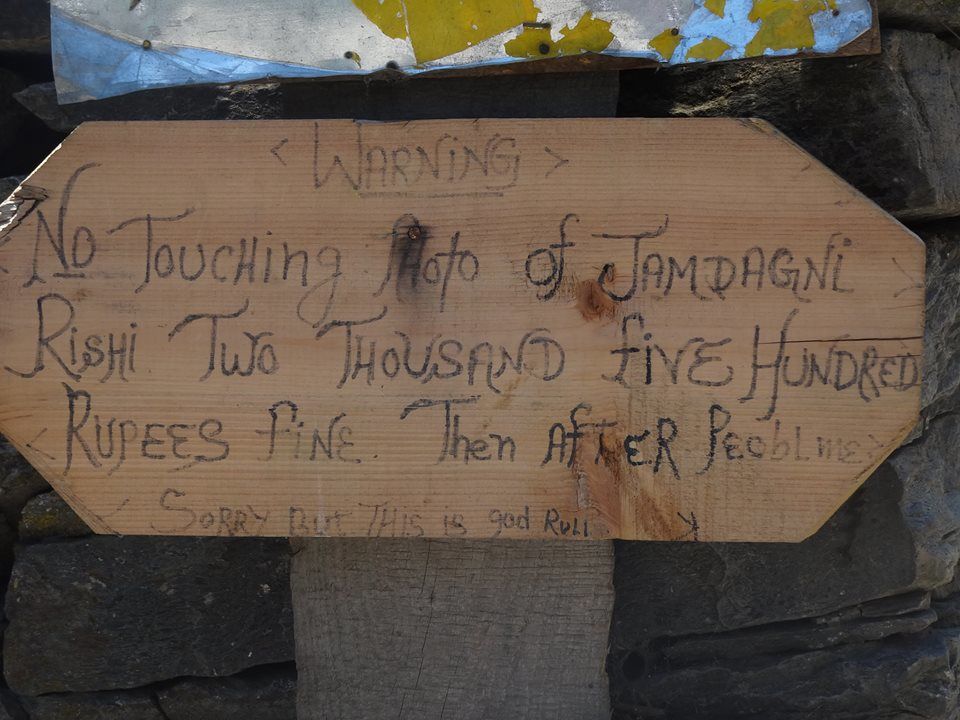 < WARNiNG >
No Touching Photo of JAMDAGNi
RiSHi Two THOUSAND fiVE HUNDRED
RUPEES fiNE. Then AFTER Peoblme
SORRY But THIS is god Rull